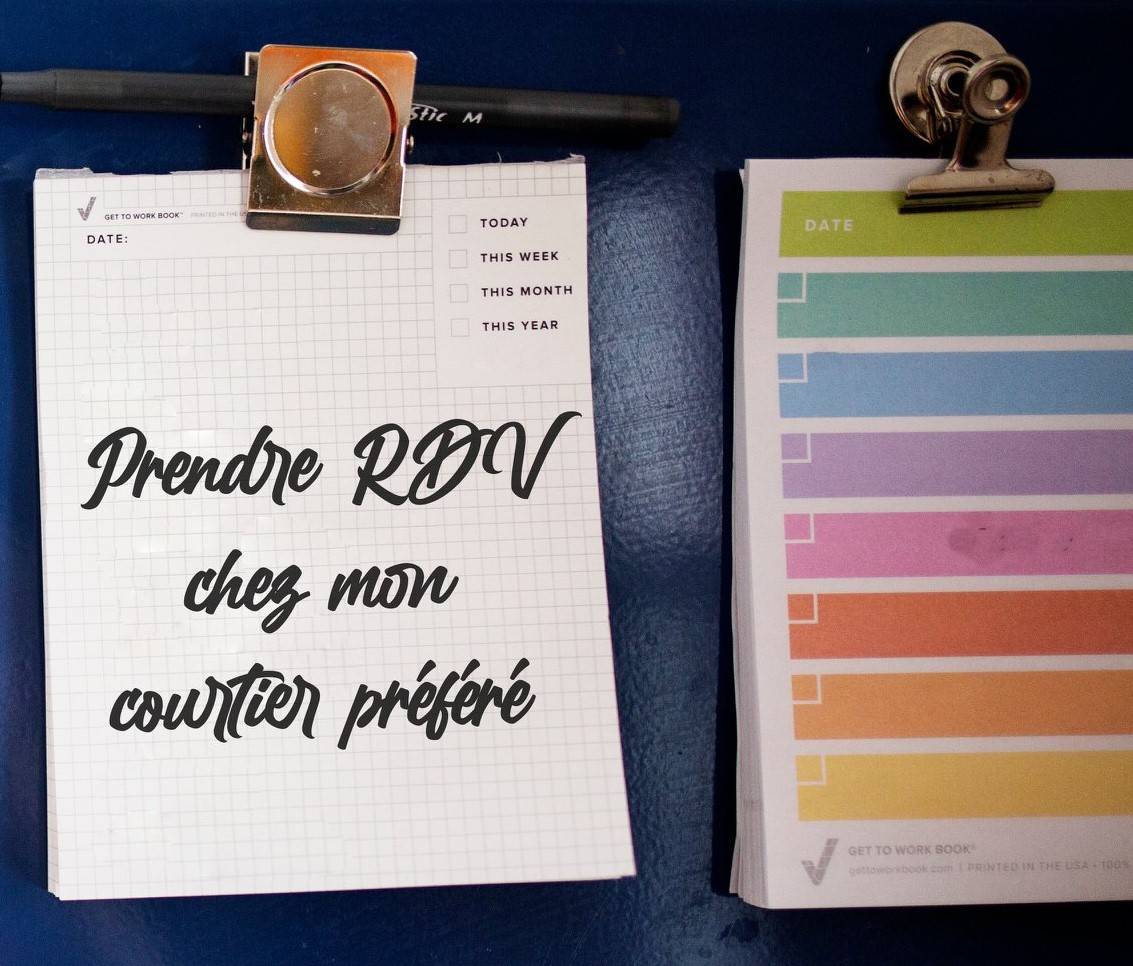 stic M
GET TO WORK BOOK™ PRINTED IN THE
DATE:
TODAY
THIS WEEK
THIS MONTH
THIS YEAR
Prendre RDV
chez mon
courtier préféré
DATE
GET TO WORK BOOK®
gettoworkbook.com | PRINTED IN THE USA • 100%